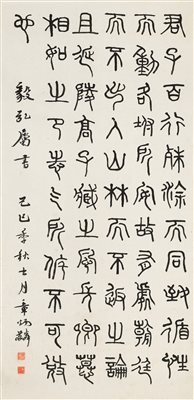 君子百行殊涂而同致循性
而動各坿所安故有處朝廷
而不出入山林而不返之論
且延陵高子臧之風長卿慕
相如之卪志气所侂不可敓
也
毅弘屬書
己巳季秋之月章炳麟